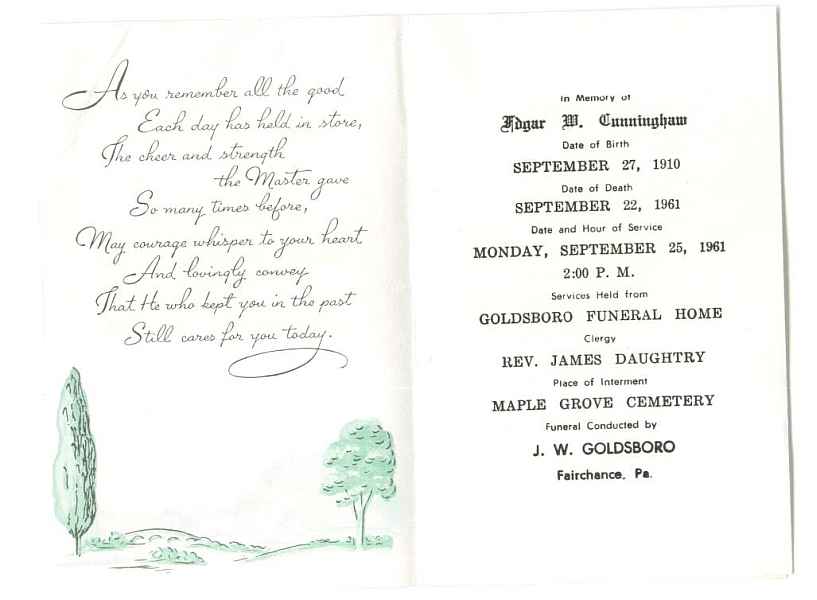 As you remember all the good
Each day has held in store,
The cheer and strength
the Master gave
So many times before,
May courage whisper to your heart
And lovingly convey
That He who kept you in the past
Still cares for you today.
In Memory of
Edgar W. Cunningham
Date of Birth
SEPTEMBER 27, 1910
Date of Death
SEPTEMBER 22, 1961
Date and Hour of Service
MONDAY, SEPTEMBER 25, 1961
2:00 P. M.
Services Held from
GOLDSBORO FUNERAL HOME
Clergy
REV. JAMES DAUGHTRY
Place of Interment
MAPLE GROVE CEMETERY
Funeral Conducted by
J. W. GOLDSBORO
Fairchance, Pa.